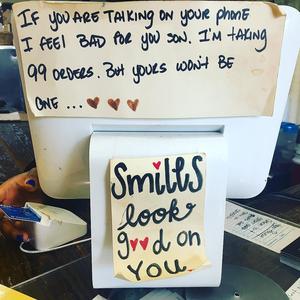 If you are talking on your phone
I feel bad for you son. I'm taking
99 orders. But yours won't be
one ... ♥ ♥ ♥
Smiles
look
g♥♥d on
you